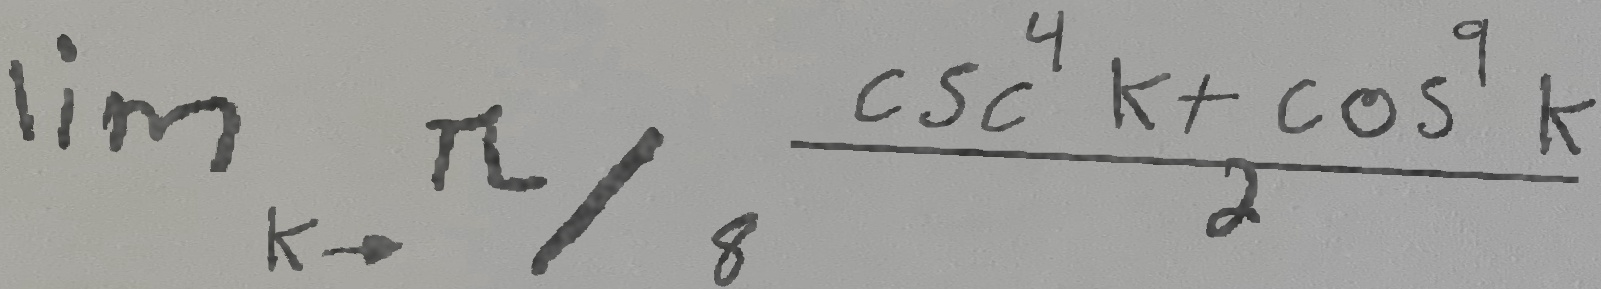 lim k→π/8 (csc^4 k + cos^9 k)/2